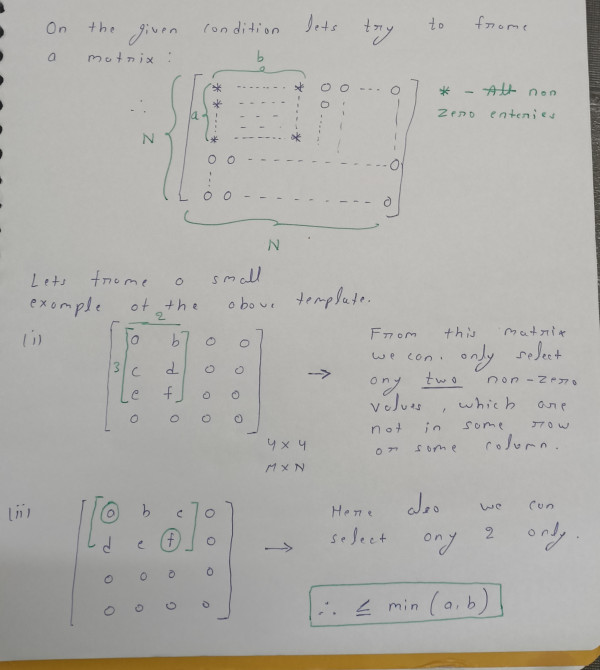 On the given condition lets try to frame
a matrix :
b
∴ N a * ------- * 0 0 --- 0
* ------- 0
* ------- *
0 0 ------------- 0
0 0 ------------- 0
N
* - All non
zero enteries
Lets frame a small
example of the above template.
2
(i) 3 [ a b 0 0
c d 0 0
e f 0 0
0 0 0 0 ]
4 x 4
M x N
→ From this matrix
we can only select
any two non-zero
values, which are
not in same row
or same column.
(ii) [ a b c 0
d e f 0
0 0 0 0
0 0 0 0 ]
→ Here also we can
select any 2 only.
∴ ≤ min (a, b)